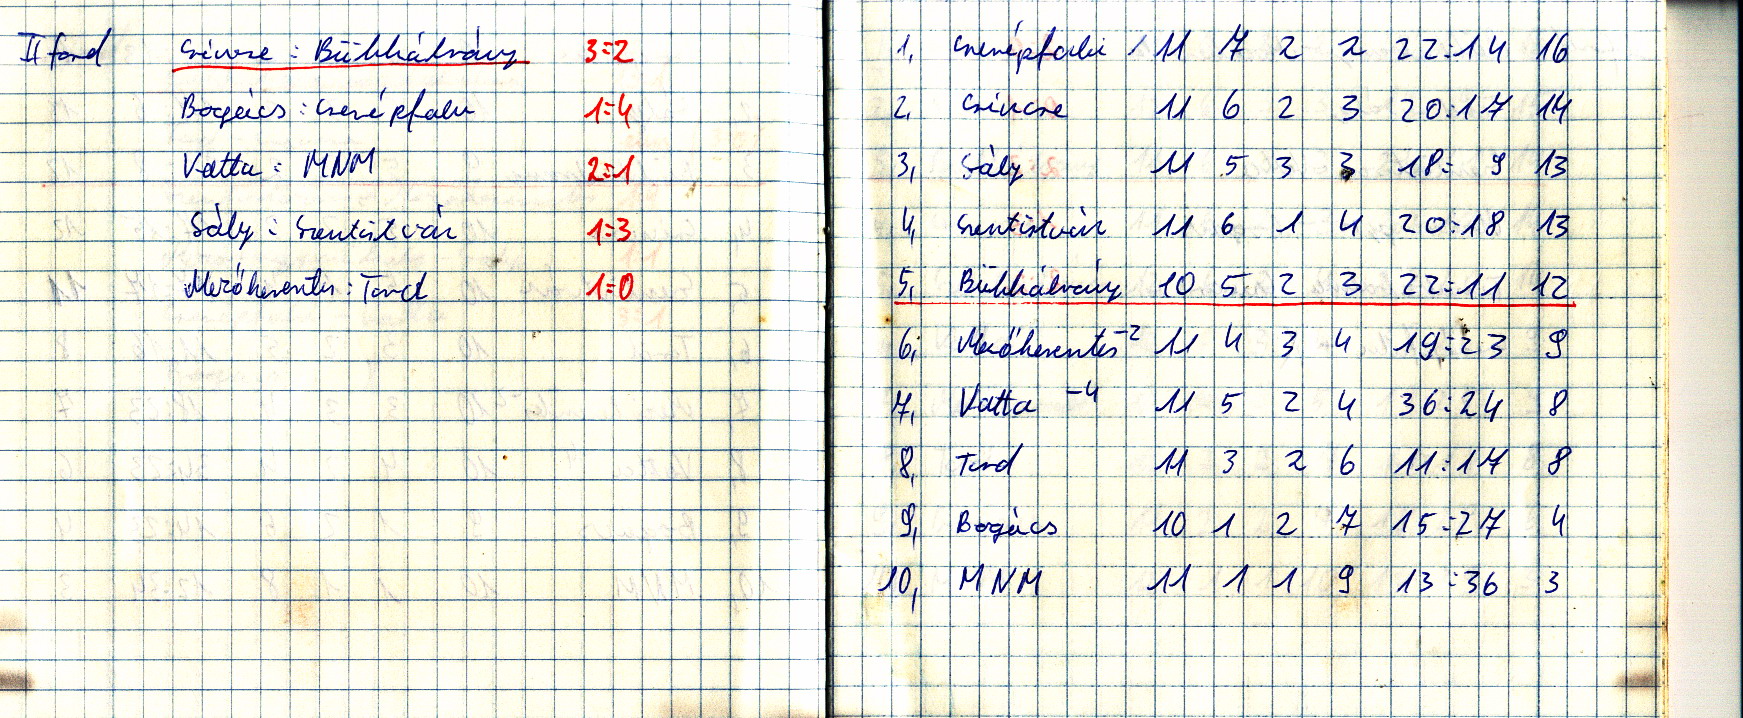 II ford Csincse : Bükkábrány 3=2
Bogács : Cserépfalu 1=4
Vatta : MNM 2=1
Sály : Szentistván 1=3
Mezőkeresztes : Tard 1=0
1, Cserépfalu 11 7 2 2 22:14 16
2, Csincse 11 6 2 3 20:17 14
3, Sály 11 5 3 3 18: 9 13
4, Szentistván 11 6 1 4 20:18 13
5, Bükkábrány 10 5 2 3 22:11 12
6, Mezőkeresztes -2 11 4 3 4 19:23 9
7, Vatta -4 11 5 2 4 36:24 8
8, Tard 11 3 2 6 11:17 8
9, Bogács 10 1 2 7 15:27 4
10, MNM 11 1 1 9 13:36 3